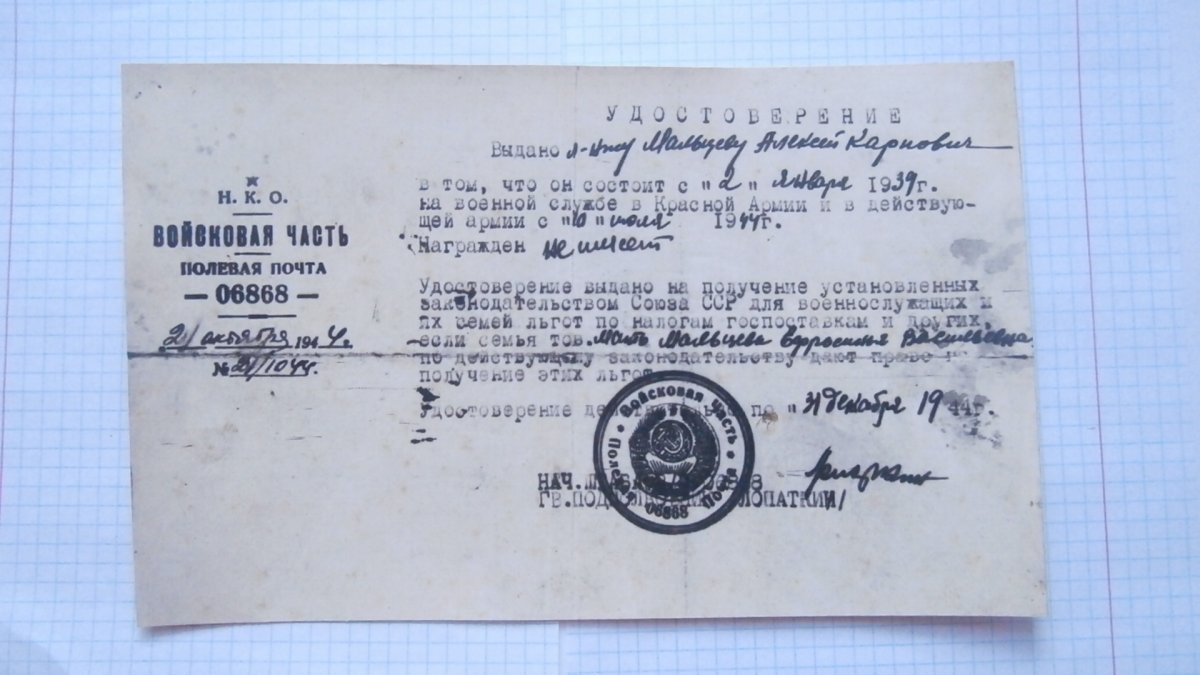 УДОСТОВЕРЕНИЕ
Выдано л-нту Мальцеву Алексей Карпович
в том, что он состоит с "2" января 1939г.
на военной службе в Красной Армии и в действую-
щей армии с "10" июля 1944г.
Награжден не имеет
Удостоверение выдано на получение установленных
законодательством Союза ССР для военнослужащих и
их семей льгот по налогам госпоставкам и других,
если семья тов. Мать Мальцева Ефросинья Васильевна
по действующему законодательству дают право
получение этих льгот
Удостоверение действительно по "31 декабря 1944г.
НАЧ. 06868
ГВ.ПОДПОЛКОВНИК ЛОПАТКИН/
Н. К. О.
ВОЙСКОВАЯ ЧАСТЬ
ПОЛЕВАЯ ПОЧТА
— 06868 —
21 октября 1944.
№ 21/1044.
Войсковая Часть • Полевая Почта 06868